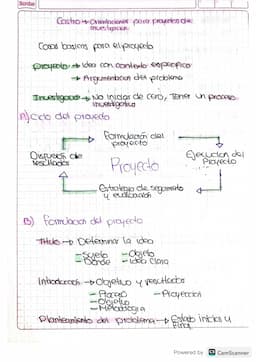 Nombre
Costro → Orientaciones para proyectos de investigación
Cosas basicas para el proyecto
proyecto → Idea con contexto especifico
→ Argumentacion del problema
Investigacion → No iniciar de cero, Tener un proceso investigativo
A) Ciclo del proyecto
Formulación del proyecto
Difusión de resultados
Proyecto
Ejecucion del Proyecto
Estrategia de seguimiento y evaluacion
B) Formulacion del proyecto
Titulo → Determinar la idea
- Sujeto - Objeto
- Donde - Idea clara
Introducción → Objetivo y resultados
- Objetivo - Proyeccion
- Metodologia
Planteamiento del problema → Estado inicial y Final
Powered by CamScanner